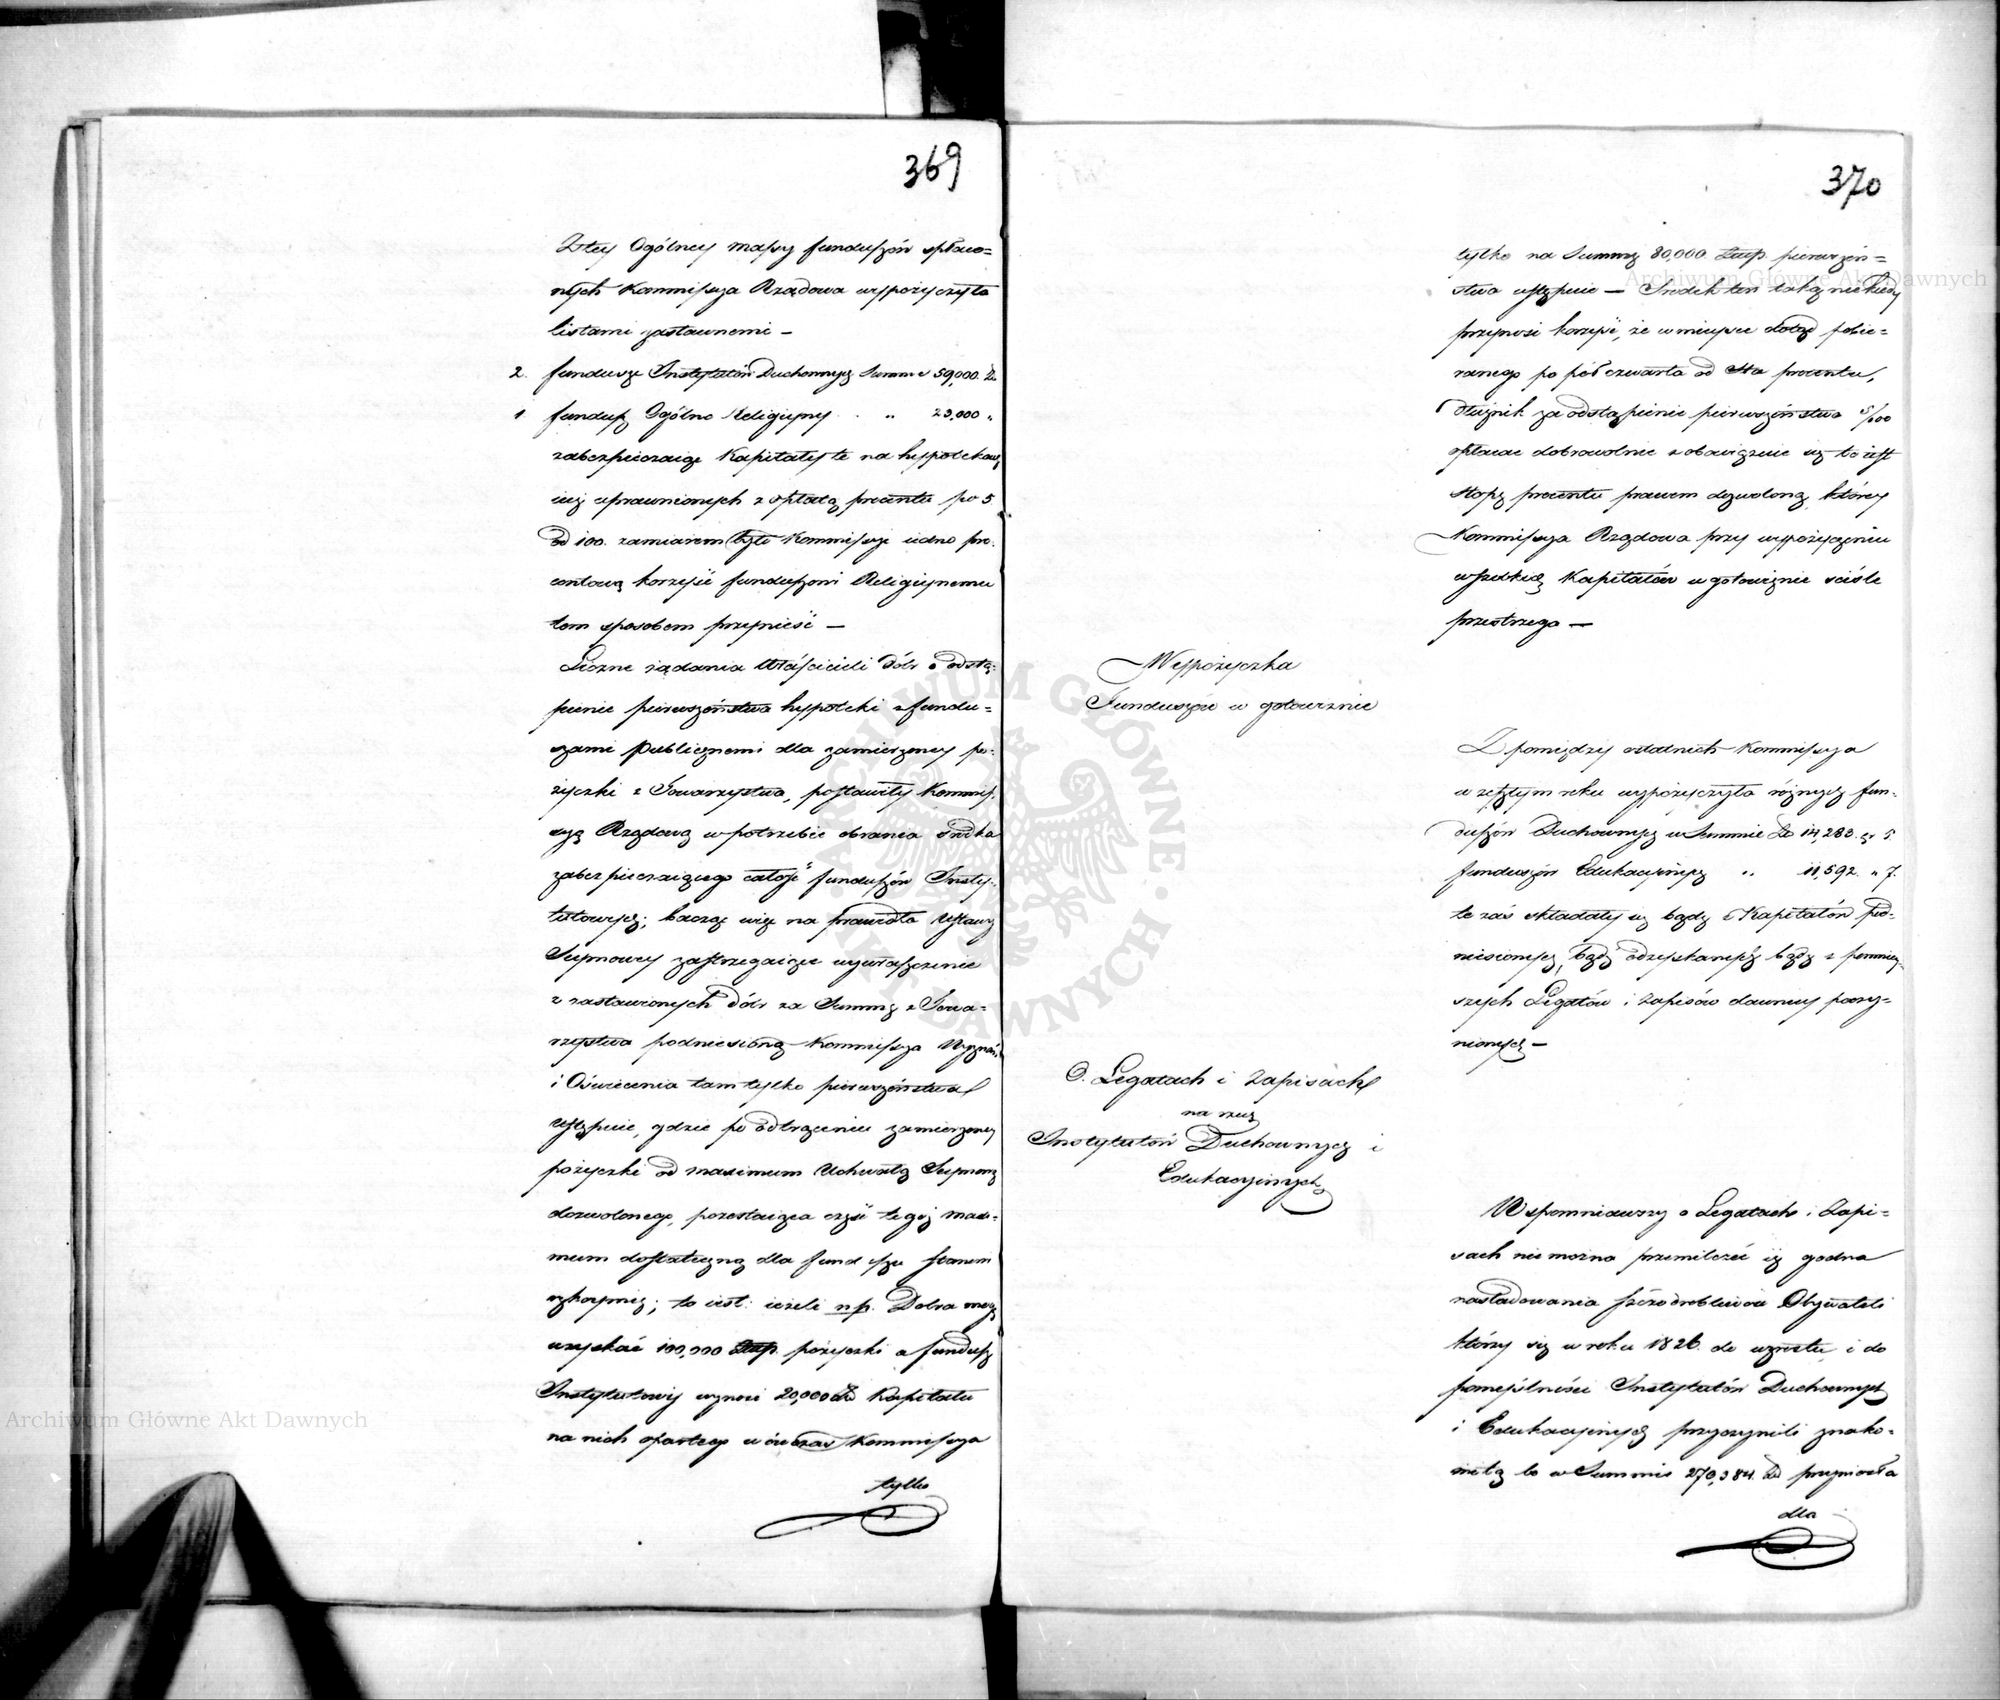 369
Z tey Ogólney massy funduszów spłaco=
nych Kommissya Rządowa wypożyczyła
listami zastawnemi —
2. fundusze Instytutów Duchownych Summe 59,000. Zł
1 fundusz Ogólno Religiyny . „ 23,000 „
zabezpieczaiąc Kapitały te na hypotekach
iuż uprawnionych z opłatą procentu po 5
od 100. zamiarem było Kommissyi iedno pro=
centową korzyść funduszowi Religiynemu
tem sposobem przynieść —
Liczne żądania Właścicieli dóbr o odstą=
pienie pierwszeństwa hypoteki z fundu=
szami Publicznemi dla zamierzoney po=
życzki z Towarzystwa, postawiły Kommis=
syą Rządową w potrzebie obrania środka
zabezpieczaiącego całość funduszów Insty=
tutowych; bacząc więc na prawidła Ustawy
Seymowey zastrzegaiące wywłaszczenie
z zastawionych dóbr za Summę z Towa=
rzystwa podniesioną Kommissya Wyznań
i Oświecenia tam tylko pierwszeństwa
Ustępuie, gdzie po odtrąceniu zamierzoney
pożyczki od maximum Uchwałą Seymową
dozwolonego, pozostaiąca część tegoż maxi=
mum dostateczną dla funduszu stanowi
rękoymię; to iest: ieżeli np. Dobra mogą
uzyskać 100,000 Złtp. pożyczki a fundusz
Instytutowy wynosi 20,000 Zł Kapitału
na nich opartego w ów czas Kommissya
tylko
370
tylko na Summę 80,000 Złtp. pierwszeń=
stwa ustępuie — Środek ten taką niekiedy
przynosi korzyść, że w mieysce dotąd pobie=
ranego po pół czwarta od sta procentu,
dłużnik za odstąpienie pierwszeństwa 5/100
opłacać dobrowolnie zobowiązuie się to iest
stopę procentu prawem dozwoloną, którey
Kommissya Rządowa przy wypożyczeniu
wszelkich Kapitałów w gotowiźnie ściśle
przestrzega —
Wypożyczka
Funduszów w gotowiznie
Z pomiędzy ostatnich Kommissya
w zeszłym roku wypożyczyła różnych fun=
duszów Duchownych w Summie Zł 14,283. gr 5.
funduszów Edukacyinych „ 11,592. „ 7.
te zaś składały się bądź z Kapitałów pod=
niesionych, bądź odzyskanych bądź z pomniey=
szych Legatów i zapisów dawniey poczy=
nionych —
O. Legatach i Zapisach
na rzecz
Instytutów Duchownych i
Edukacyinych
Wspomniawszy o Legatach i Zapi=
sach nie można przemilczeć iż godna
naśladowania szczodrobliwość Obywateli
którzy się w roku 1826. do wzrostu i do
pomyślności Instytutów Duchownych
i Edukacyinych przyczynili znako=
mitą bo w Summie 270,384. Zł przyniosła
dla
Archiwum Główne Akt Dawnych
Archiwum Główne Akt Dawnych
ARCHIWUM GŁÓWNE AKT DAWNYCH